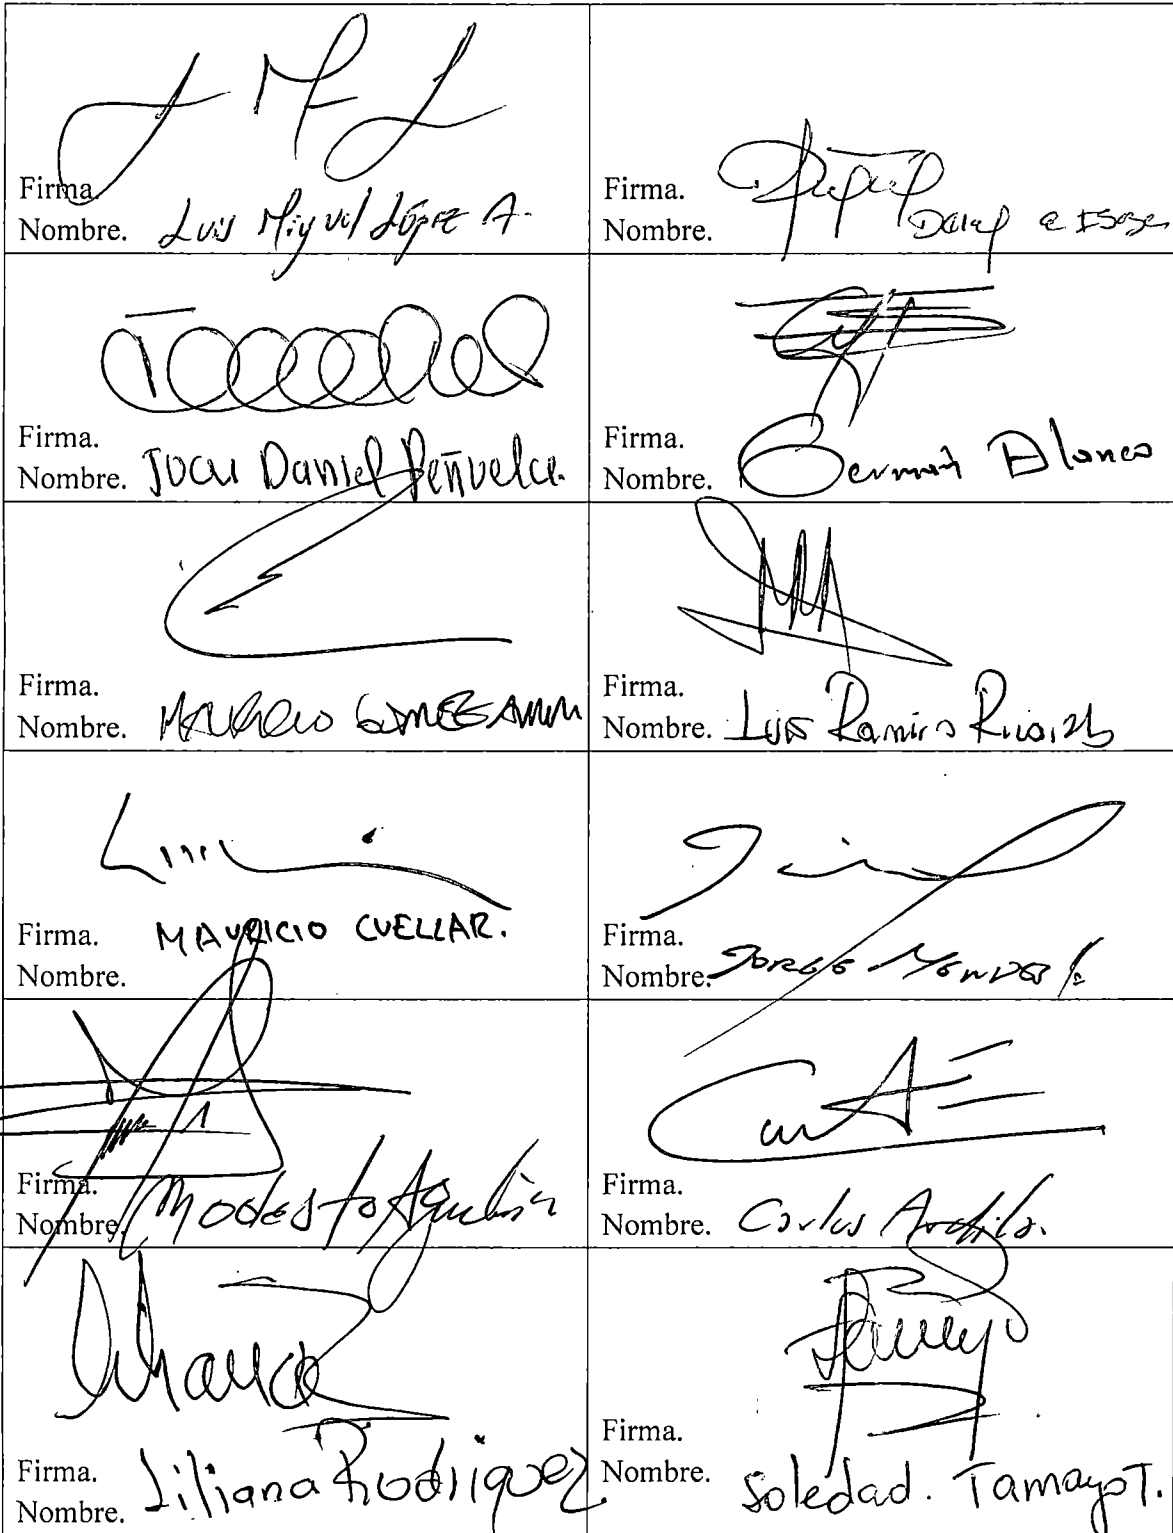 Firma.
Nombre. Luis Miguel López A.
Firma.
Nombre.
Firma.
Nombre. Juan Daniel Peñuela.
Firma.
Nombre. German Blanco
Firma.
Nombre. Mauricio Gomez Amin
Firma.
Nombre. Luis Ramiro Ricardo
Firma. MAURICIO CUELLAR.
Nombre.
Firma.
Nombre. Jorge Mendez
Firma.
Nombre. Modesto Aguilera
Firma.
Nombre. Carlos Ardila.
Firma.
Nombre. Liliana Rodriguez
Firma.
Nombre. Soledad. Tamayo T.